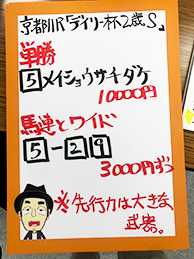 京都11R「デイリー杯2歳S」
単勝
5 メイショウサチダケ
10000円
馬連とワイド
5-2 9
3000円ずつ
※先行力は大きな
武器。